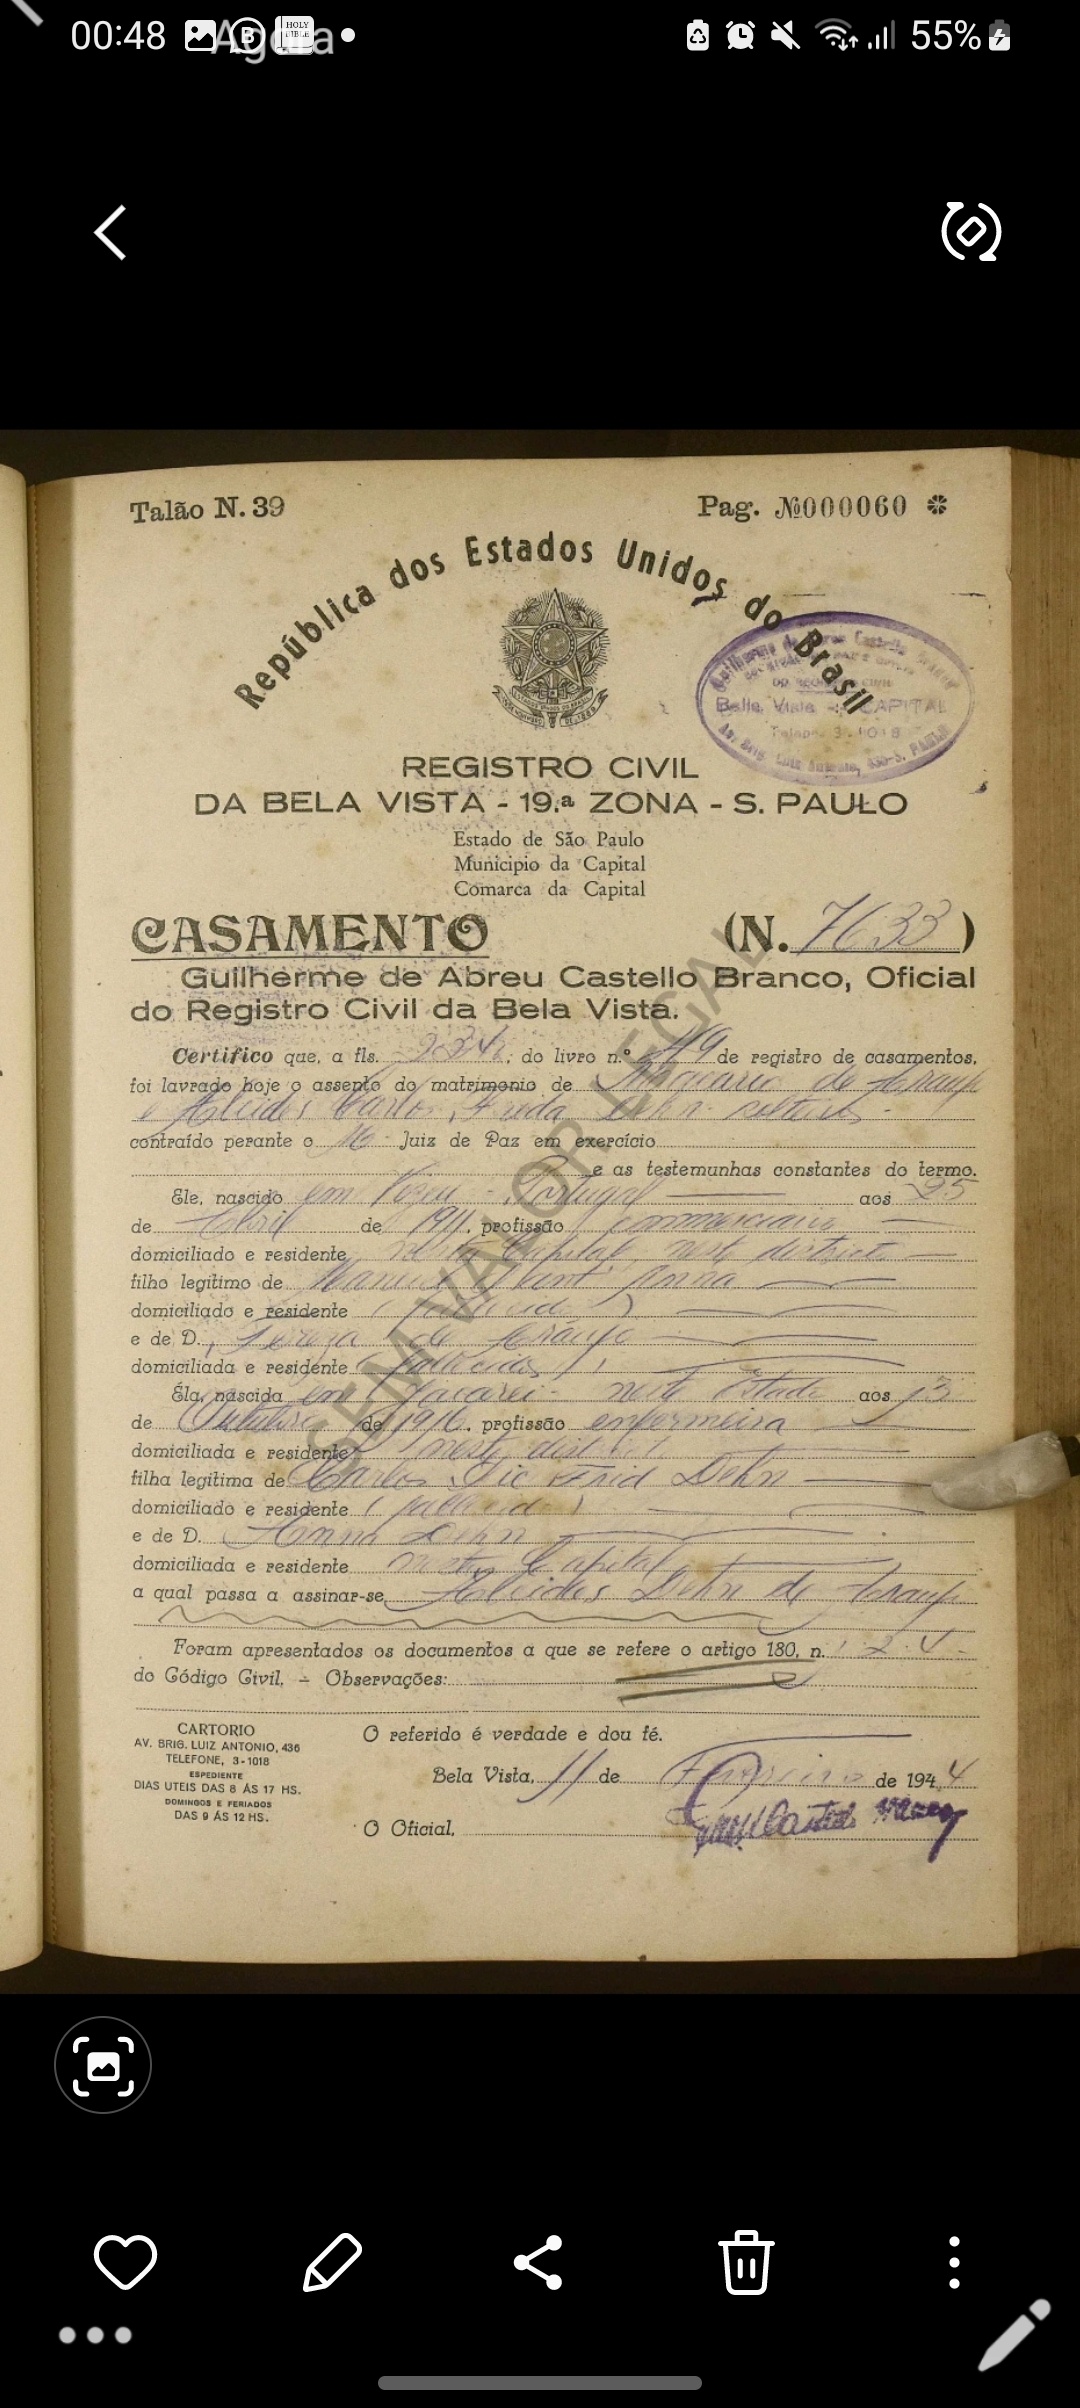 00:48
Agora
HOLY BIBLE
55%
Talão N. 39
Pag. №000060
República dos Estados Unidos do Brasil
Bella Vista - CAPITAL
REGISTRO CIVIL
DA BELA VISTA - 19.ª ZONA - S. PAULO
Estado de São Paulo
Municipio da Capital
Comarca da Capital
CASAMENTO (N. 7633)
Guilherme de Abreu Castello Branco, Oficial
do Registro Civil da Bela Vista.
Certifico que, a fls. do livro n.º de registro de casamentos,
foi lavrado hoje o assento do matrimonio de de Araujo
e Alcides Carlos Frida Dehn
contraído perante o Juiz de Paz em exercício
e as testemunhas constantes do termo.
Ele, nascido em Portugal aos 25
de Abril de 1911, profissão commerciario
domiciliado e residente nesta Capital, neste districto
filho legitimo de Manuel Sant' Anna
domiciliado e residente (falecido)
e de D. Tereza de Araujo
domiciliada e residente (falecida)
Éla, nascida em Jacarei - neste Estado aos 13
de Outubro de 1916, profissão enfermeira
domiciliada e residente neste district
filha legitima de Carlos Frid Dehn
domiciliado e residente (falecido)
e de D. Anna Dehn
domiciliada e residente nesta Capital
a qual passa a assinar-se Alcides Dehn de Araujo
Foram apresentados os documentos a que se refere o artigo 180, n. 1 2 4
do Código Civil. - Observações:
CARTORIO
AV. BRIG. LUIZ ANTONIO, 436
TELEFONE, 3-1018
ESPEDIENTE
DIAS UTEIS DAS 8 ÁS 17 HS.
DOMINGOS E FERIADOS
DAS 9 ÁS 12 HS.
O referido é verdade e dou fé.
Bela Vista, 11 de Fevereiro de 1944
O Oficial,
SEM VALOR LEGAL